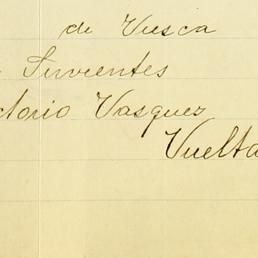 de Vusca
Sirvientes
ctorio Vasquez
Vuelta